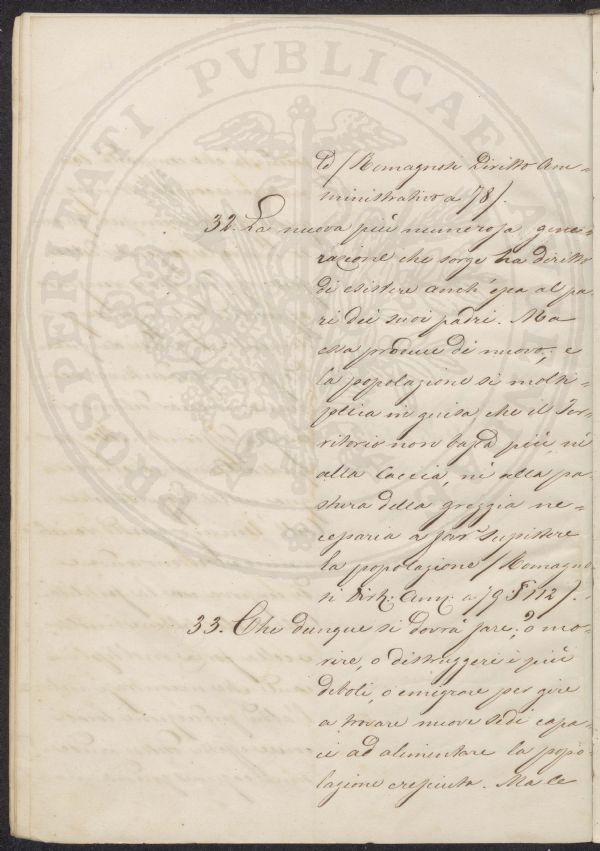 PROSPERITATI PVBLICAE
td (Romagnosi Diritto Am=
ministrativo a 78).
32. La nuova più numerosa gene=
razione che sorge ha diritto
di esistere anch' essa al pa=
ri dei suoi padri. Ma
essa produce di nuovo, e
la popolazione si molti=
plica in guisa che il Ter=
ritorio non basta più, nè
alla Caccia, nè alla pa=
stura della greggia ne=
cessaria a far sussistere
la popolazione (Romagno
si Dirit: Amm: a 79 § 112).
33. Che dunque si dovrà fare? ò mo=
rire, o distruggere i più
deboli, o emigrare per gire
a trovare nuove sedi capa=
ci ad alimentare la popo=
lazione cresciuta. Ma le